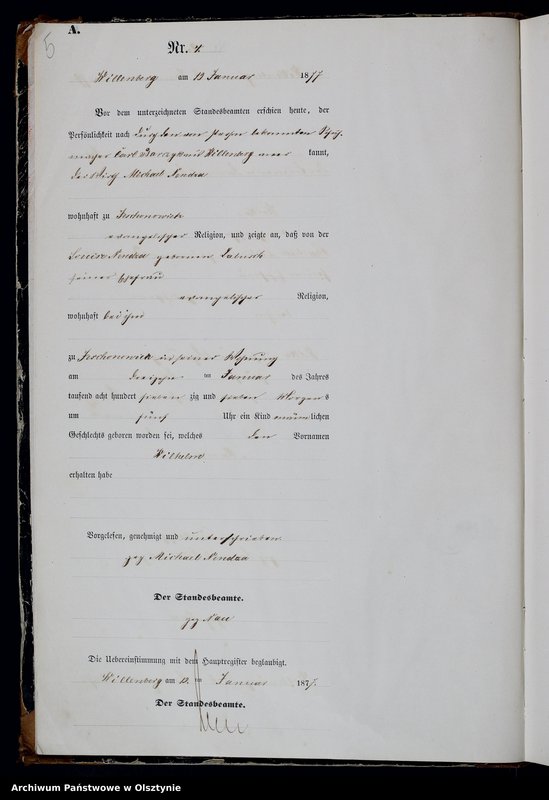 5
A.
Nr. 4
Willenberg am 13 Januar 1877
Vor dem unterzeichneten Standesbeamten erschien heute, der
Persönlichkeit nach durch den von Person bekannten Schuh
macher Carl aus Willenberg aner kannt,
der Wirth Michael Nendza
wohnhaft zu Jeschonowitz
evangelischer Religion, und zeigte an, daß von der
Louise Nendza geborenen
seiner Ehefrau
evangelischer Religion,
wohnhaft bei ihm
zu Jeschonowitz in seiner Wohnung
am dreizehn ten Januar des Jahres
tausend acht hundert sieben zig und sieben Morgens
um fünf Uhr ein Kind männlichen
Geschlechts geboren worden sei, welches den Vornamen
Wilhelm
erhalten habe
Vorgelesen, genehmigt und unterschrieben
gez Michael Nendza
Der Standesbeamte.
gez Nau
Die Uebereinstimmung mit dem Hauptregister beglaubigt.
Willenberg am 13 ten Januar 1877.
Der Standesbeamte.
Archiwum Państwowe w Olsztynie